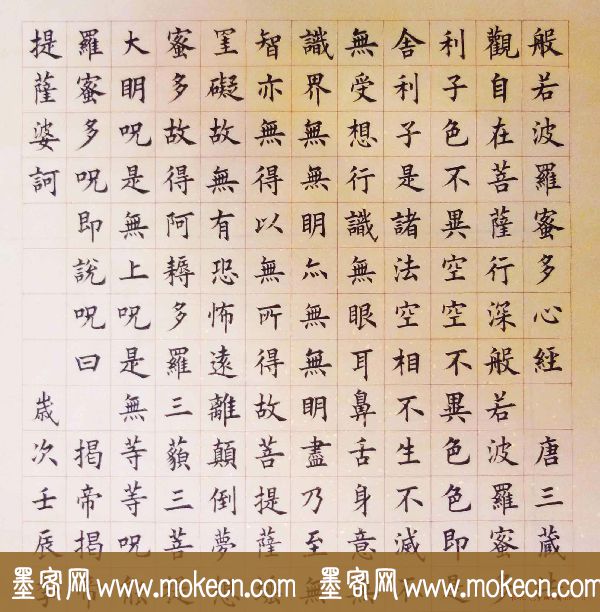 般若波羅蜜多心經 唐三藏
觀自在菩薩行深般若波羅蜜
利子色不異空空不異色色即
舍利子是諸法空相不生不滅
無受想行識無眼耳鼻舌身意
識界無無明亦無無明盡乃至
智亦無得以無所得故菩提薩
罣礙故無有恐怖遠離顛倒夢
蜜多故得阿耨多羅三藐三菩
大明呪是無上呪是無等等呪
羅蜜多呪即說呪曰 揭帝揭
提薩婆訶 歲次壬辰
墨客网 www.mokecn.com 墨客网 www.mokecn.com